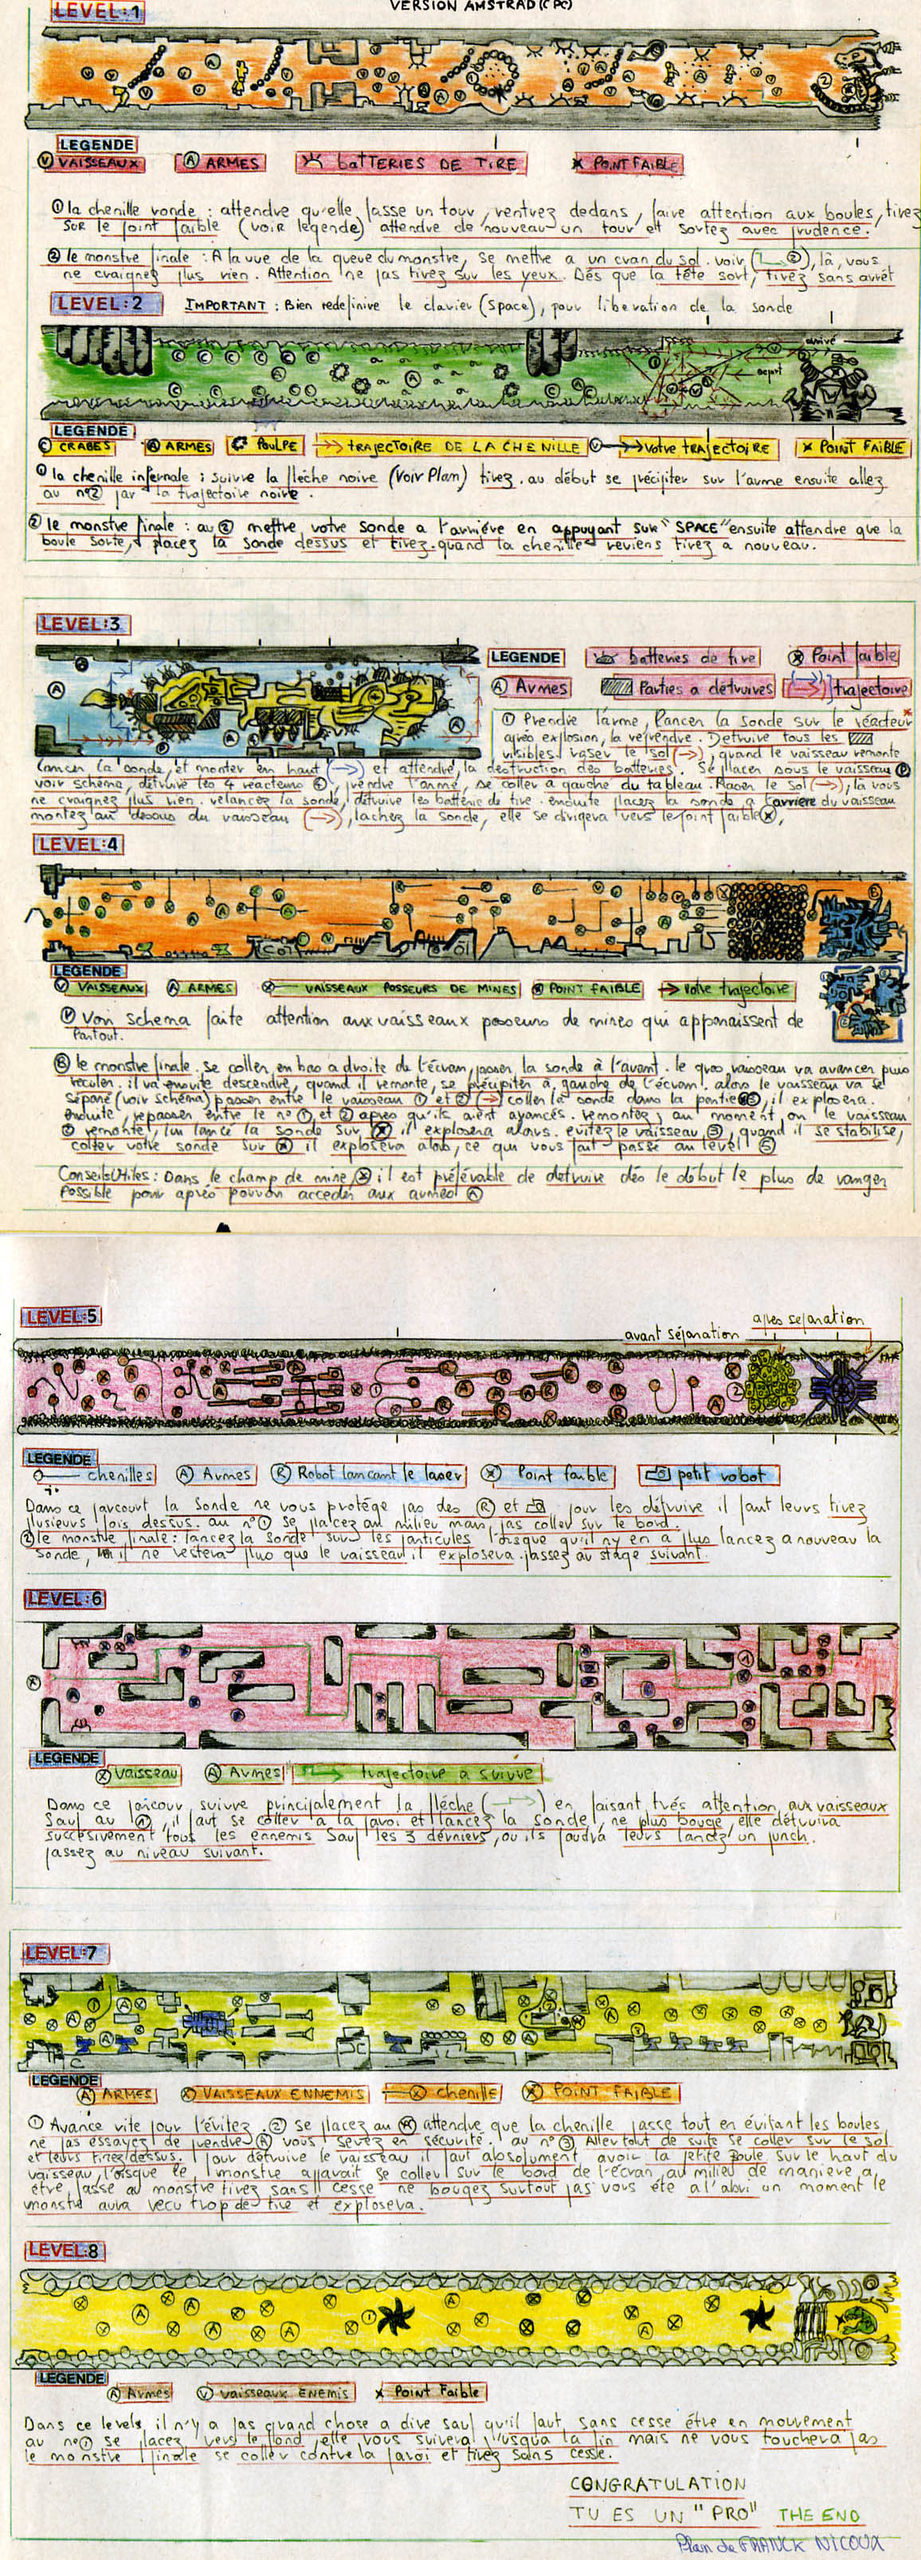 VERSION AMSTRAD (CPC)
LEVEL:1
LEGENDE
V VAISSEAUX A ARMES BATTERIES DE TIRE POINT FAIBLE
① la chenille ronde : attendre qu'elle fasse un tour, rentrez dedans, faire attention aux boules, tirez
sur le point faible (voir légende) attendre de nouveau un tour et sortez avec prudence.
② le monstre finale : A la vue de la queue du monstre, se mettre a un cran du sol. voir (②), là, vous
ne craignez plus rien. Attention ne pas tirez sur les yeux. Dés que la tête sort, tirez sans arrêt
LEVEL:2 IMPORTANT : Bien redefinire le clavier (Space), pour liberation de la sonde
arrivé
depart
LEGENDE
C CRABES A ARMES POULPE TRAJECTOIRE DE LA CHENILLE V votre TRAJECTOIRE × POINT FAIBLE
① la chenille infernale : suivre la flèche noire (Voir Plan) tirez. au début se précipiter sur l'arme ensuite allez
au n°② par la trajectoire noire.
② le monstre finale : au ② mettre votre Sonde a l'arriére en appuyant sur "SPACE" ensuite attendre que la
boule sorte, placez la sonde dessus et tirez. quand la chenille reviens tirez a nouveau.
LEVEL:3
LEGENDE batteries de tire Point faible
A Armes Parties a détruires trajectoire
① Prendre l'arme, lancer la sonde sur le réacteur*
aprés explosion, la reprendre. Detruire tous les
visibles. raser le sol (→), quand le vaisseau remonte
lancer la sonde, et monter en haut (→) et attendre, la destruction des batteries. Se placer sous le vaisseau
voir schéma, détruire les 4 réacteurs, prendre l'arme, se coller a gauche du tableau. Raser le sol (→), là vous
ne craignez plus rien. relancez la sonde, détruire les batterie de tire. ensuite placez la sonde a l'arriére du vaisseau
montez au dessus du vaisseau (→), lachez la sonde, elle se dirigera vers le point faible ⊗,
LEVEL:4
LEGENDE
V VAISSEAUX A ARMES VAISSEAUX POSSEURS DE MINES POINT FAIBLE → votre trajectoire
Ⓥ Voir schema faite attention aux vaisseaux posseurs de mines qui apparaissent de
Partout.
Ⓑ le monstre finale. se coller, en bas a droite de l'écran, poser la sonde à l'avant. le gros vaisseau va avancer puis
reculer. il va ensuite descendre, quand il remonte, se précipiter à gauche de l'écran. alors le vaisseau va se
séparé (voir schéma) passer entre le vaisseau ① et ② (→) coller la sonde dans la partie ③, il explosera.
Ensuite, repasser entre le n° ① et ② après qu'ils aient avancés. remontez, au moment, ou le vaisseau
② remonte, lancé la sonde sur ⊗ il explosera alors. evitez le vaisseau ③, quand il se stabilise,
coller votre sonde sur ⊗ il explosera alors, ce qui vous fait passé au level ⑤
Conseils Utiles : Dans le champ de mine, ⊗ il est préférable de detruire dés le début le plus de ranger
Possible pour aprés pouvoir acceder aux armes Ⓐ
LEVEL:5
avant séparation
apres separation
LEGENDE
chenilles A Armes R Robot lancant le laser × Point faible petit robot
Dans ce parcourt la Sonde ne vous protége pas des Ⓡ et pour les détruire il faut leurs tirez
plusieurs fois dessus. au n°① se placez au milieu mais pas coller sur le bord.
② le monstre finale : lancez la sonde sur les particules lorsque qu'il n'y en a plus lancez a nouveau la
Sonde, il ne restera plus que le vaisseau il explosera. passez au stage suivant.
LEVEL:6
LEGENDE
× Vaisseau A Armes trajectoire a suivre
Dans ce parcour suivre principalement la fléche (→) en faisant trés attention aux vaisseaux
Sauf au ①, il faut se coller a la paroi et lancez la sonde, ne plus bouge, elle détruira
succesivement tous les ennemis Sauf les 3 dérniers, ou ils faudra leurs lancez un punch.
passez au niveau suivant.
LEVEL:7
LEGENDE
A ARMES VAISSEAUX ENNEMIS × chenille × POINT FAIBLE
① Avance vite pour l'évitez. ② se placez au Ⓐ attendre que la chenille passe tout en évitant les boules
ne pas essayez de prendre Ⓐ vous serez en sécurité. au n°③ Aller tout de suite se coller sur le sol
et leurs tirez dessus. Pour detruire le vaisseau il faut absolument avoir la petite boule sur le haut du
vaisseau, lorsque le monstre apparait se coller sur le bord de l'écran, au milieu de maniere a
étre face au monstre tirez sans cesse ne bougez surtout pas vous éte a l'abri un moment le
monstre aura recu trop de tire et explosera.
LEVEL:8
LEGENDE
A Armes V vaisseaux ENEMIS × Point Faible
Dans ce levels il n'y a pas grand chose a dire sauf qu'il faut sans cesse étre en mouvement
au n°① se placez vers le fond, elle vous suivera jusqua la fin mais ne vous touchera pas
le monstre finale se coller contre la paroi et tirez sans cesse.
CONGRATULATION
TU ES UN "PRO" THE END
Plan de FRANCK NICOUX